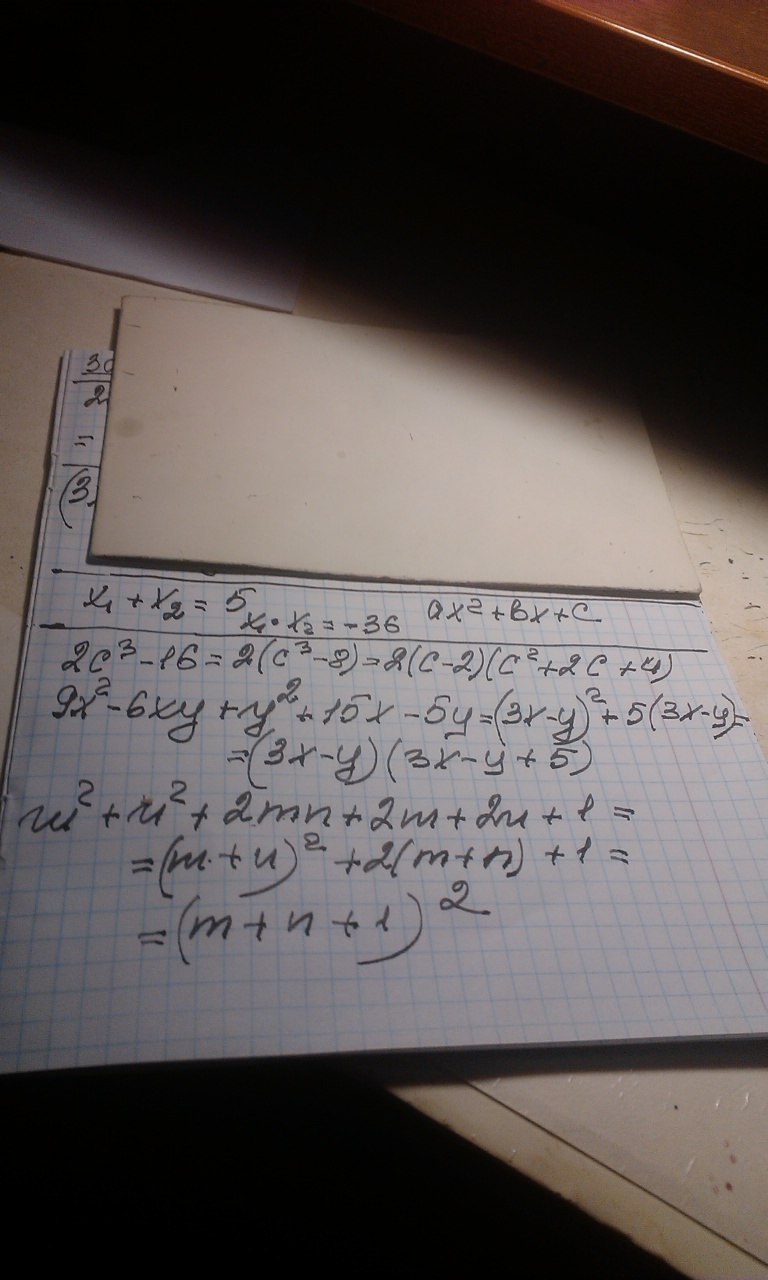 30
2
=
(3
x₁ + x₂ = 5 x₁ • x₂ = -36 ax² + bx + c
2c³ - 16 = 2(c³ - 8) = 2(c - 2)(c² + 2c + 4)
9x² - 6xy + y² + 15x - 5y = (3x - y)² + 5(3x - y) =
= (3x - y)(3x - y + 5)
m² + n² + 2mn + 2m + 2n + 1 =
= (m + n)² + 2(m + n) + 1 =
= (m + n + 1)²